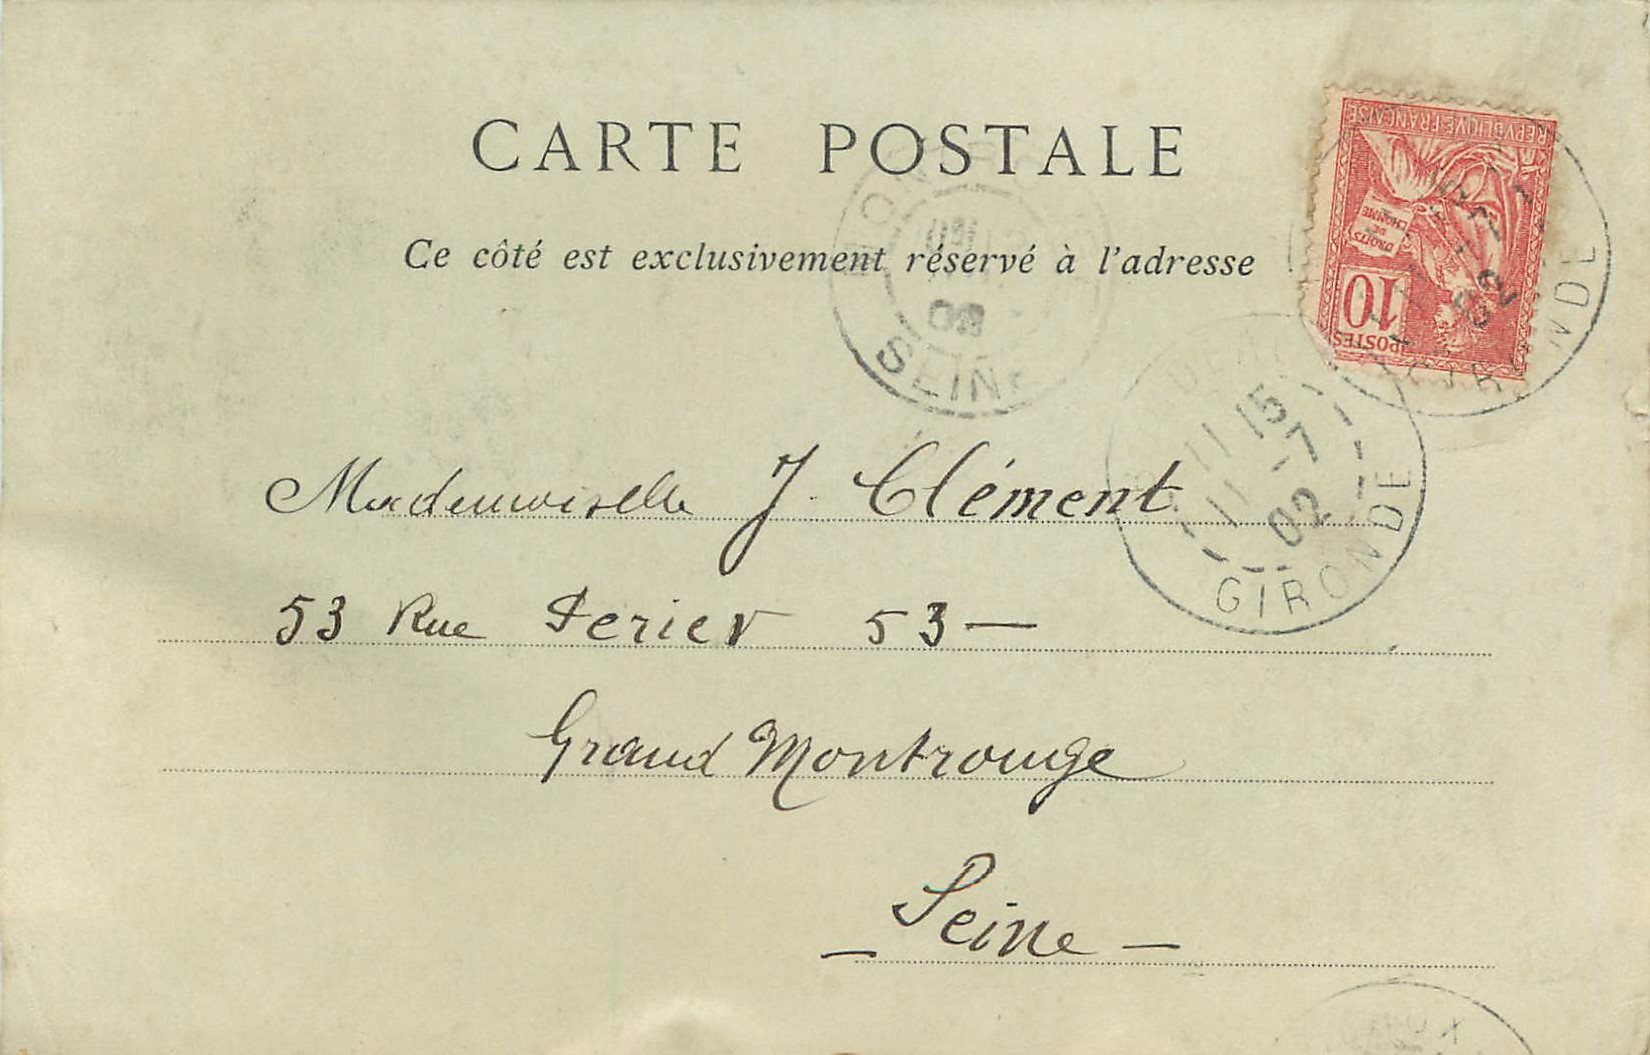 CARTE POSTALE
Ce côté est exclusivement réservé à l'adresse
REPVBLIQVE FRANÇAISE
DROITS DE L'HOMME
10
POSTES
02
SEINE
GIRONDE
11 15
11 -7
02
GIRONDE
Mademoiselle J. Clément
53 Rue Perier 53 —
Grand Montrouge
— Seine —